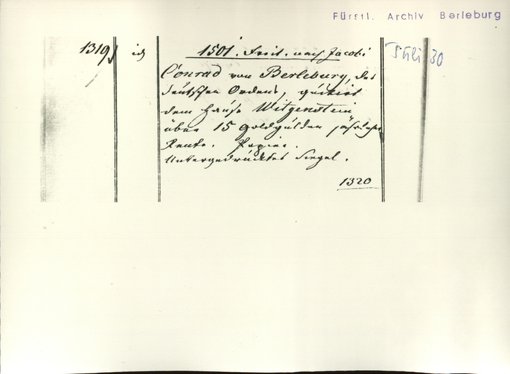 Fürstl. Archiv Berleburg
1319, ich 1501. Freit. nach Jacobi Juli 30
Conrad von Berleburg, des
deutschen Ordens, quitirt
dem Hause Witgenstein
über 15 Goldgülden jährlicher
Rente. Papier.
Untergedrucktes Siegel.
1320